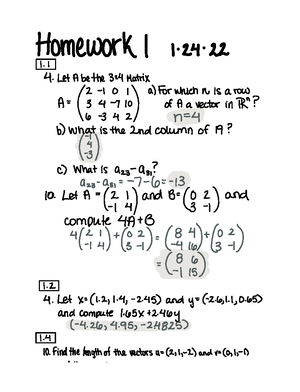 Homework 1 1·24·22
1.1
4. Let A be the 3×4 Matrix
A = (2 -1 0 1
3 4 -7 10
6 -3 4 2)
a) For which n is a row
of A a vector in ℝⁿ?
n=4
b) What is the 2nd column of A?
(-1
4
-3)
c) What is a₂₃-a₃₁?
a₂₃-a₃₁ = -7-6 = -13
10. Let A = (2 1
-1 4) and B = (0 2
3 -1) and
compute 4A+B
4(2 1
-1 4) + (0 2
3 -1) = (8 4
-4 16) + (0 2
3 -1)
= (8 6
-1 15)
1.2
4. Let x=(1.2, 1.4, -2.45) and y=(-2.6, 1.1, 0.65)
and compute 1.65x+2.46y
(-4.26, 4.95, -2.4825)
1.4
10. Find the length of the vectors u=(2,1,-2) and v=(0,1,-1)